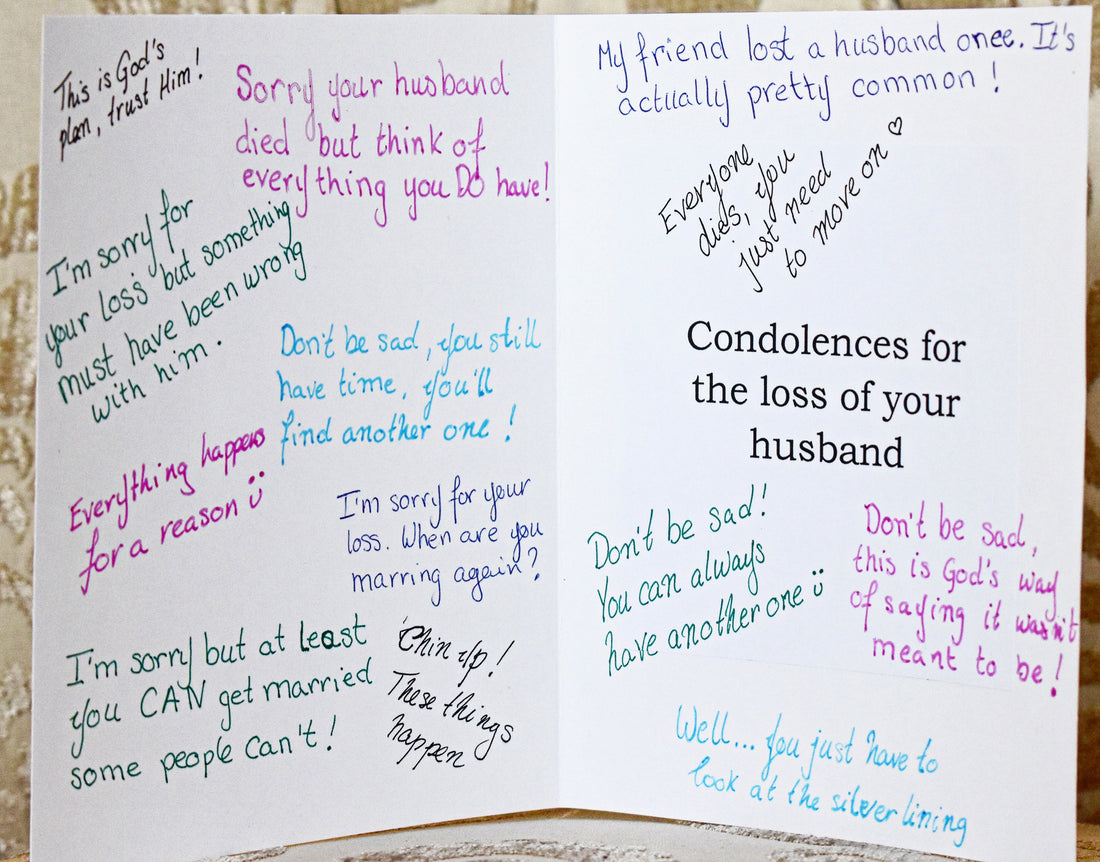 This is God's
plan, trust Him!
Sorry your husband
died but think of
everything you DO have!
I'm sorry for
your loss but something
must have been wrong
with him.
Don't be sad, you still
have time, you'll
find another one!
Everything happens
for a reason ü
I'm sorry for your
loss. When are you
marring again?
I'm sorry but at least
you CAN get married
some people can't!
Chin up!
These things
happen
My friend lost a husband once. It's
actually pretty common!
Everyone
dies, you
just need
to move on ♡
Condolences for
the loss of your
husband
Don't be sad!
You can always
have another one ü
Don't be sad,
this is God's way
of saying it wasn't
meant to be!
Well... you just have to
look at the silver lining